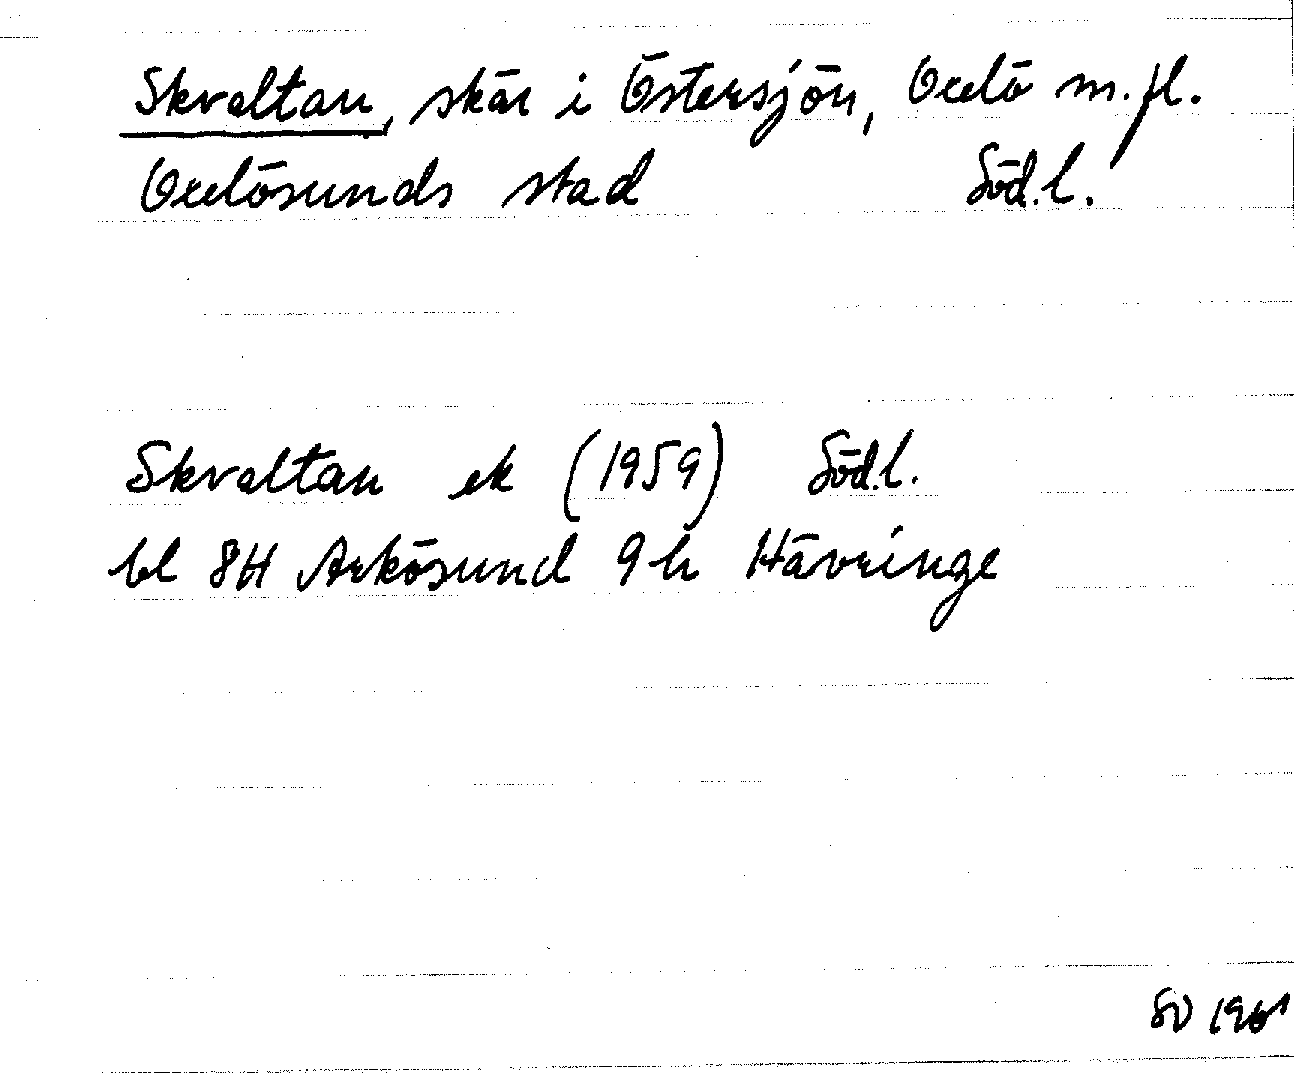 Skvaltan, skär i Östersjön, Oxelö m.fl.
Oxelösunds stad Södl.
Skvaltan ek (1959) Södl.
bl 8H Arkösund 9h Hävringe
SV 1961